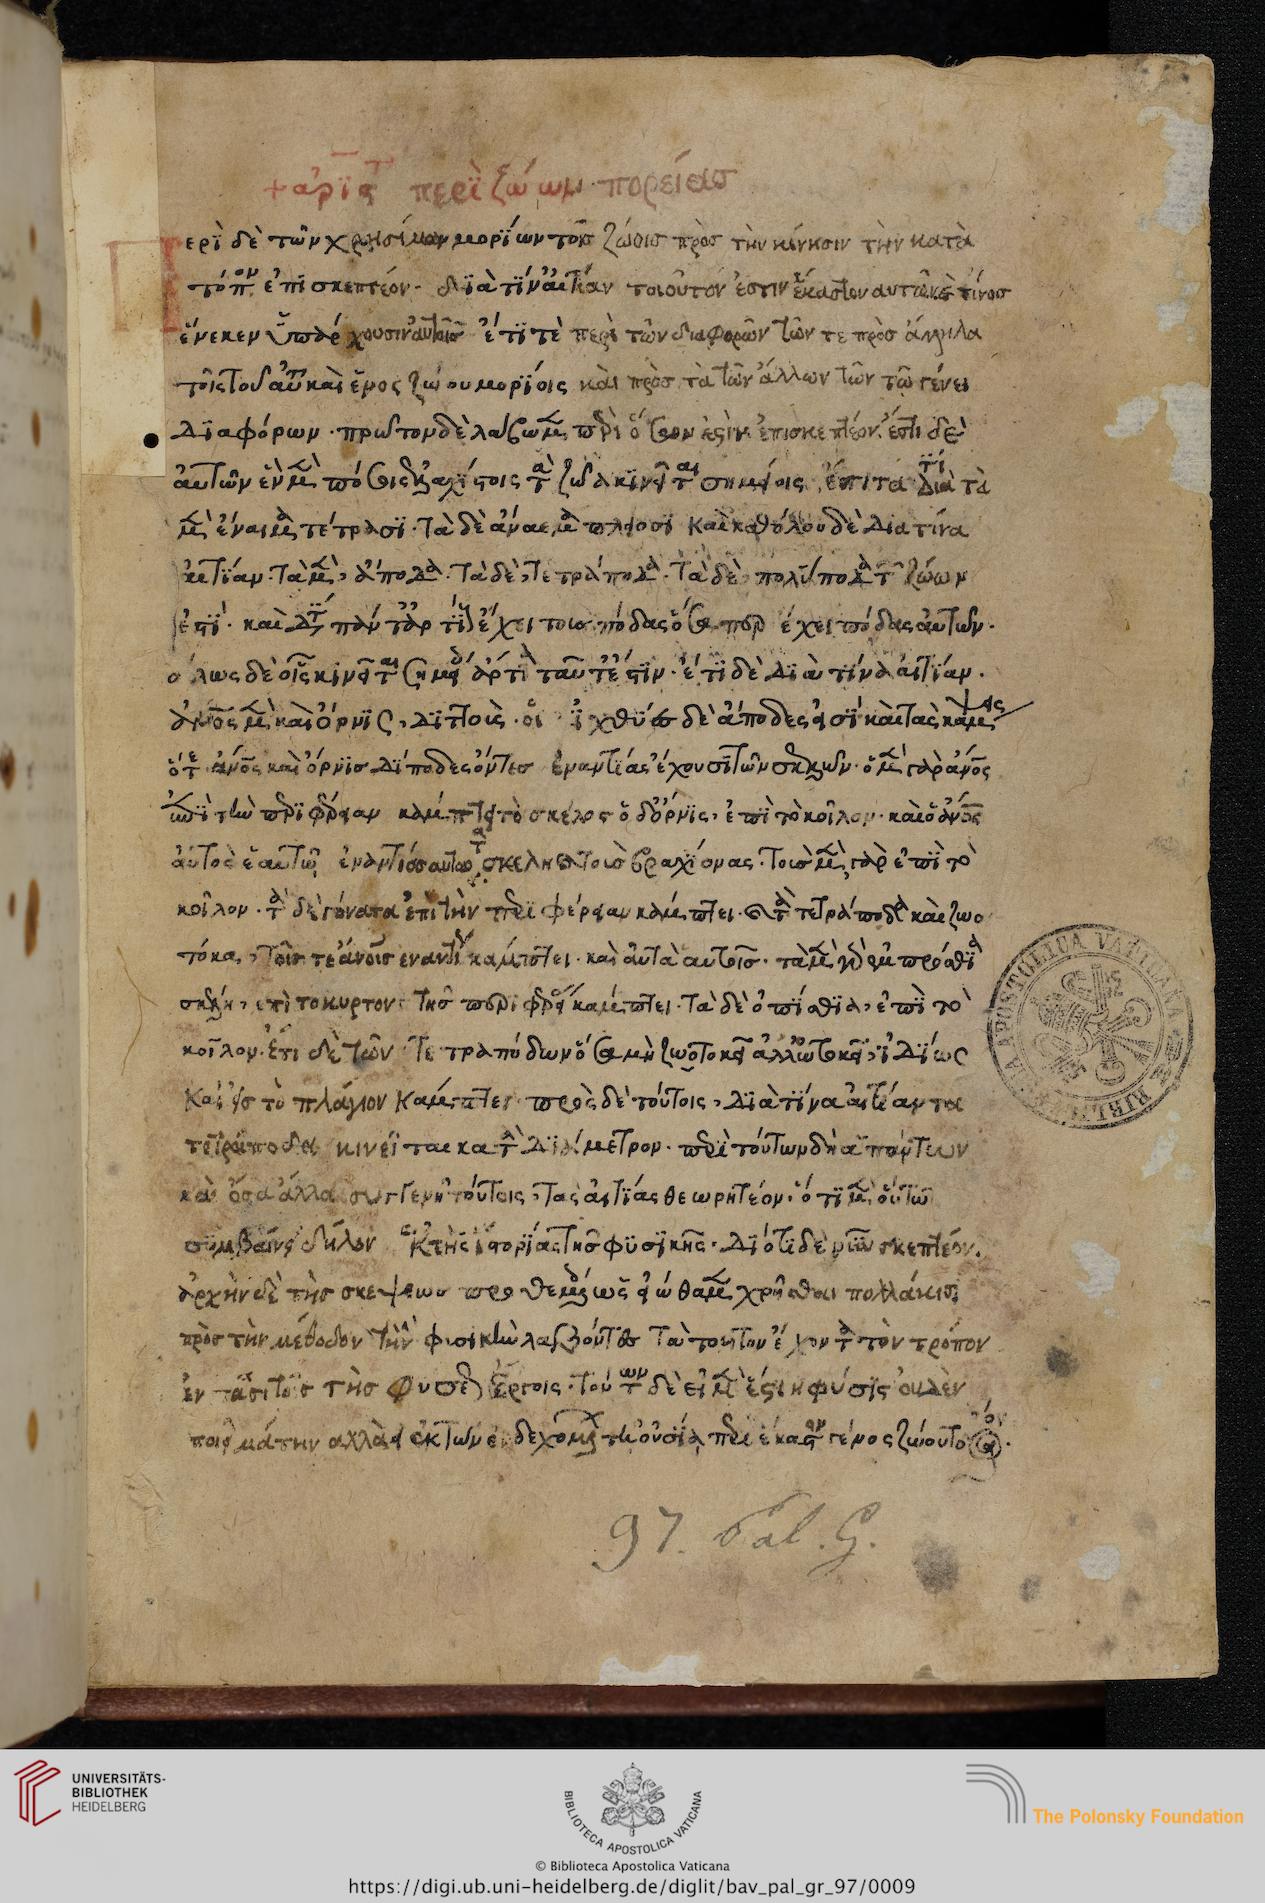 + ἀριστ περὶ ζώων πορείας
Περὶ δὲ τῶν χρησίμων μορίων τοῖς ζώοις πρὸς τὴν κίνησιν τὴν κατὰ
τόπον ἐπισκεπτέον· διὰ τίν' αἰτίαν τοιοῦτόν ἐστιν ἕκαστον αυτῶν κ τίνος
ἕνεκεν ὑπάρχουσιν αὐτοῖς ἔτι τὲ περὶ τῶν διαφορῶν τῶν τε πρὸς ἄλληλα
τοῖς τοῦ αὐτ καὶ ἑνος ζώου μορίοις καὶ πρὸς τὰ τῶν ἄλλων τῶν τῷ γένει
διαφόρων· πρῶτον δὲ λάβωμεν περὶ ὅσων ἐστὶν ἐπισκεπτέον· ἔστι δὲ
αὐτῶν ἓν μὲν πόσοις ἐλαχίστοις τὰ ζῶα κινεῖται σημείοις ἔπιτα διὰ τί τὰ
μὲν ἔναιμα τέτρασι· τὰ δὲ ἄναιμα πλείοσι καὶ καθόλου δὲ διὰ τίνα
αἰτίαν· τὰ μὲν, ἄποδα· τὰ δὲ, τετράποδα· τὰ δὲ, πολύποδα τ ζώων
ἐστί· καὶ διὰ τί πάντ' ἄρτι ἔχει τοὺς πόδας ὅσα περ ἔχει πόδας αὐτῶν·
ὅλως δὲ οἷς κινεῖται σημείοις ἄρτια ταῦτ' ἐστίν· ἔτι δὲ διὰ τίνα αἰτίαν·
ἄνος μὲν καὶ ὄρνις, δίπους· οἱ ἰχθύες δὲ ἄποδες εἰσί καὶ τὰς κάμψεις
ὅτε ἄνος καὶ ὄρνις δίποδες ὄντες ἐναντίας ἔχουσι τῶν σκελῶν· ὁ μὲν γὰρ ἄνος
ἐπὶ τὴν περιφέρειαν κάμπτει τὸ σκέλος ὁ δ' ὄρνις, ἐπὶ τὸ κοῖλον· καὶ ὁ ἄνος
αὐτὸς ἑαυτῷ ἐναντίως τὰ σκέλη κ τοὺς βραχίονας· τοὺς μὲν γὰρ ἐπὶ τὸ
κοῖλον· τὰ δὲ γόνατα ἐπὶ τὴν περιφέρειαν κάμπτει· κ τὰ τετράποδα καὶ ζωο
τόκα, τοῖς τε ἄνοις ἐναντίως κάμπτει· καὶ αὐτὰ αυτοῖς· τὰ μὲν γὰρ ἐμπρόσθια
σκέλη, ἐπὶ το κυρτον τῆς περιφερείας κάμπτει· τὰ δὲ ὀπίσθια, ἐπὶ τὸ
κοῖλον· ἔτι δὲ τῶν τετραπόδων ὅσα μὴ ζωοτοκεῖ ἀλλ' ὠοτοκεῖ, ἰδίως
καὶ εἰς τὸ πλάγιον κάμπτει· πρὸς δὲ τούτοις, διὰ τίνα αἰτίαν τα
τετράποδα κινεῖται κατὰ διάμετρον· περὶ τούτων δὴ πάντων
καὶ ὅσα ἄλλα συγγενῆ τούτοις, τὰς αἰτίας θεωρητέον· ὅτι μὲν οὕτω
συμβαίνει δῆλον ἐκ τῆς ἱστορίας τῆς φυσικῆς· διότι δὲ νῦν σκεπτέον·
ἀρχὴν δὲ τῆς σκέψεως προθεμένοις ὡς εἰώθαμεν χρῆσθαι πολλάκις
πρὸς τὴν μέθοδον τὴν φυσικὴν λαβόντες τὰ τοῦτον ἔχοντα τὸν τρόπον
ἐν πᾶσι τοῖς τῆς φύσεως ἔργοις· τούτων δὲ ἓν μὲν ἐστὶν ἡ φύσις οὐδὲν
ποιεῖ μάτην αλλὰ εἰ ἐκ τῶν ἐνδεχομένων τῇ οὐσίᾳ περὶ ἕκαστον γένος ζώου τὸ
97. Pal. G.
BIBLIOTHECA APOSTOLICA VATICANA
UNIVERSITÄTS-
BIBLIOTHEK
HEIDELBERG
BIBLIOTECA APOSTOLICA VATICANA
The Polonsky Foundation
© Biblioteca Apostolica Vaticana
https://digi.ub.uni-heidelberg.de/diglit/bav_pal_gr_97/0009